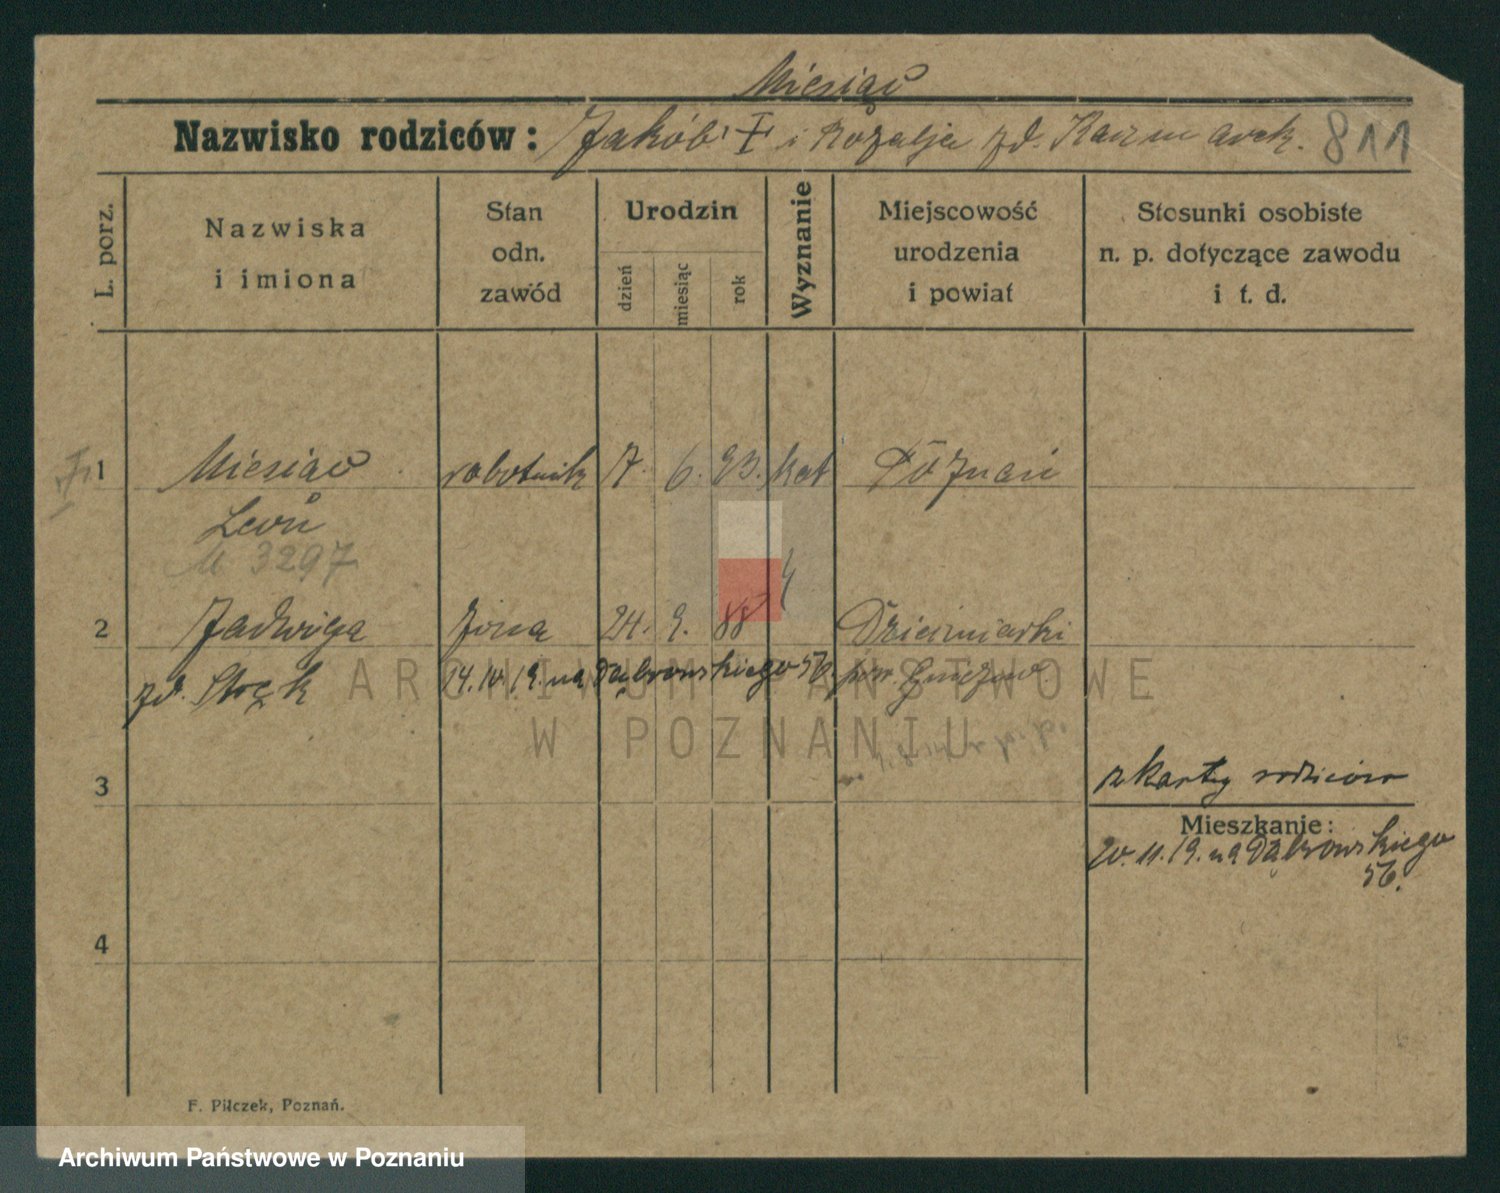 Miesiąc
Nazwisko rodziców: Jakób i Rozalja zd. Kaczmarek. 811
L. porz.
Nazwiska i imiona
Stan odn. zawód
Urodzin
dzień
miesiąc
rok
Wyznanie
Miejscowość urodzenia i powiat
Stosunki osobiste n. p. dotyczące zawodu i t. d.
1 Miesiąc robotnik 7. 6. 93. kat Poznań
Leon
M 3297
2 Jadwiga żona 24. 9. 88 Dziećmiarki
zd. Stręk 24.10.19. na Dąbrowskiego 56. pow. Gniezno.
ARCHIWUM PAŃSTWOWE
W POZNANIU
3 z karty rodziców
Mieszkanie:
20.11.19. na Dąbrowskiego
56.
4
F. Pilczek, Poznań.
Archiwum Państwowe w Poznaniu